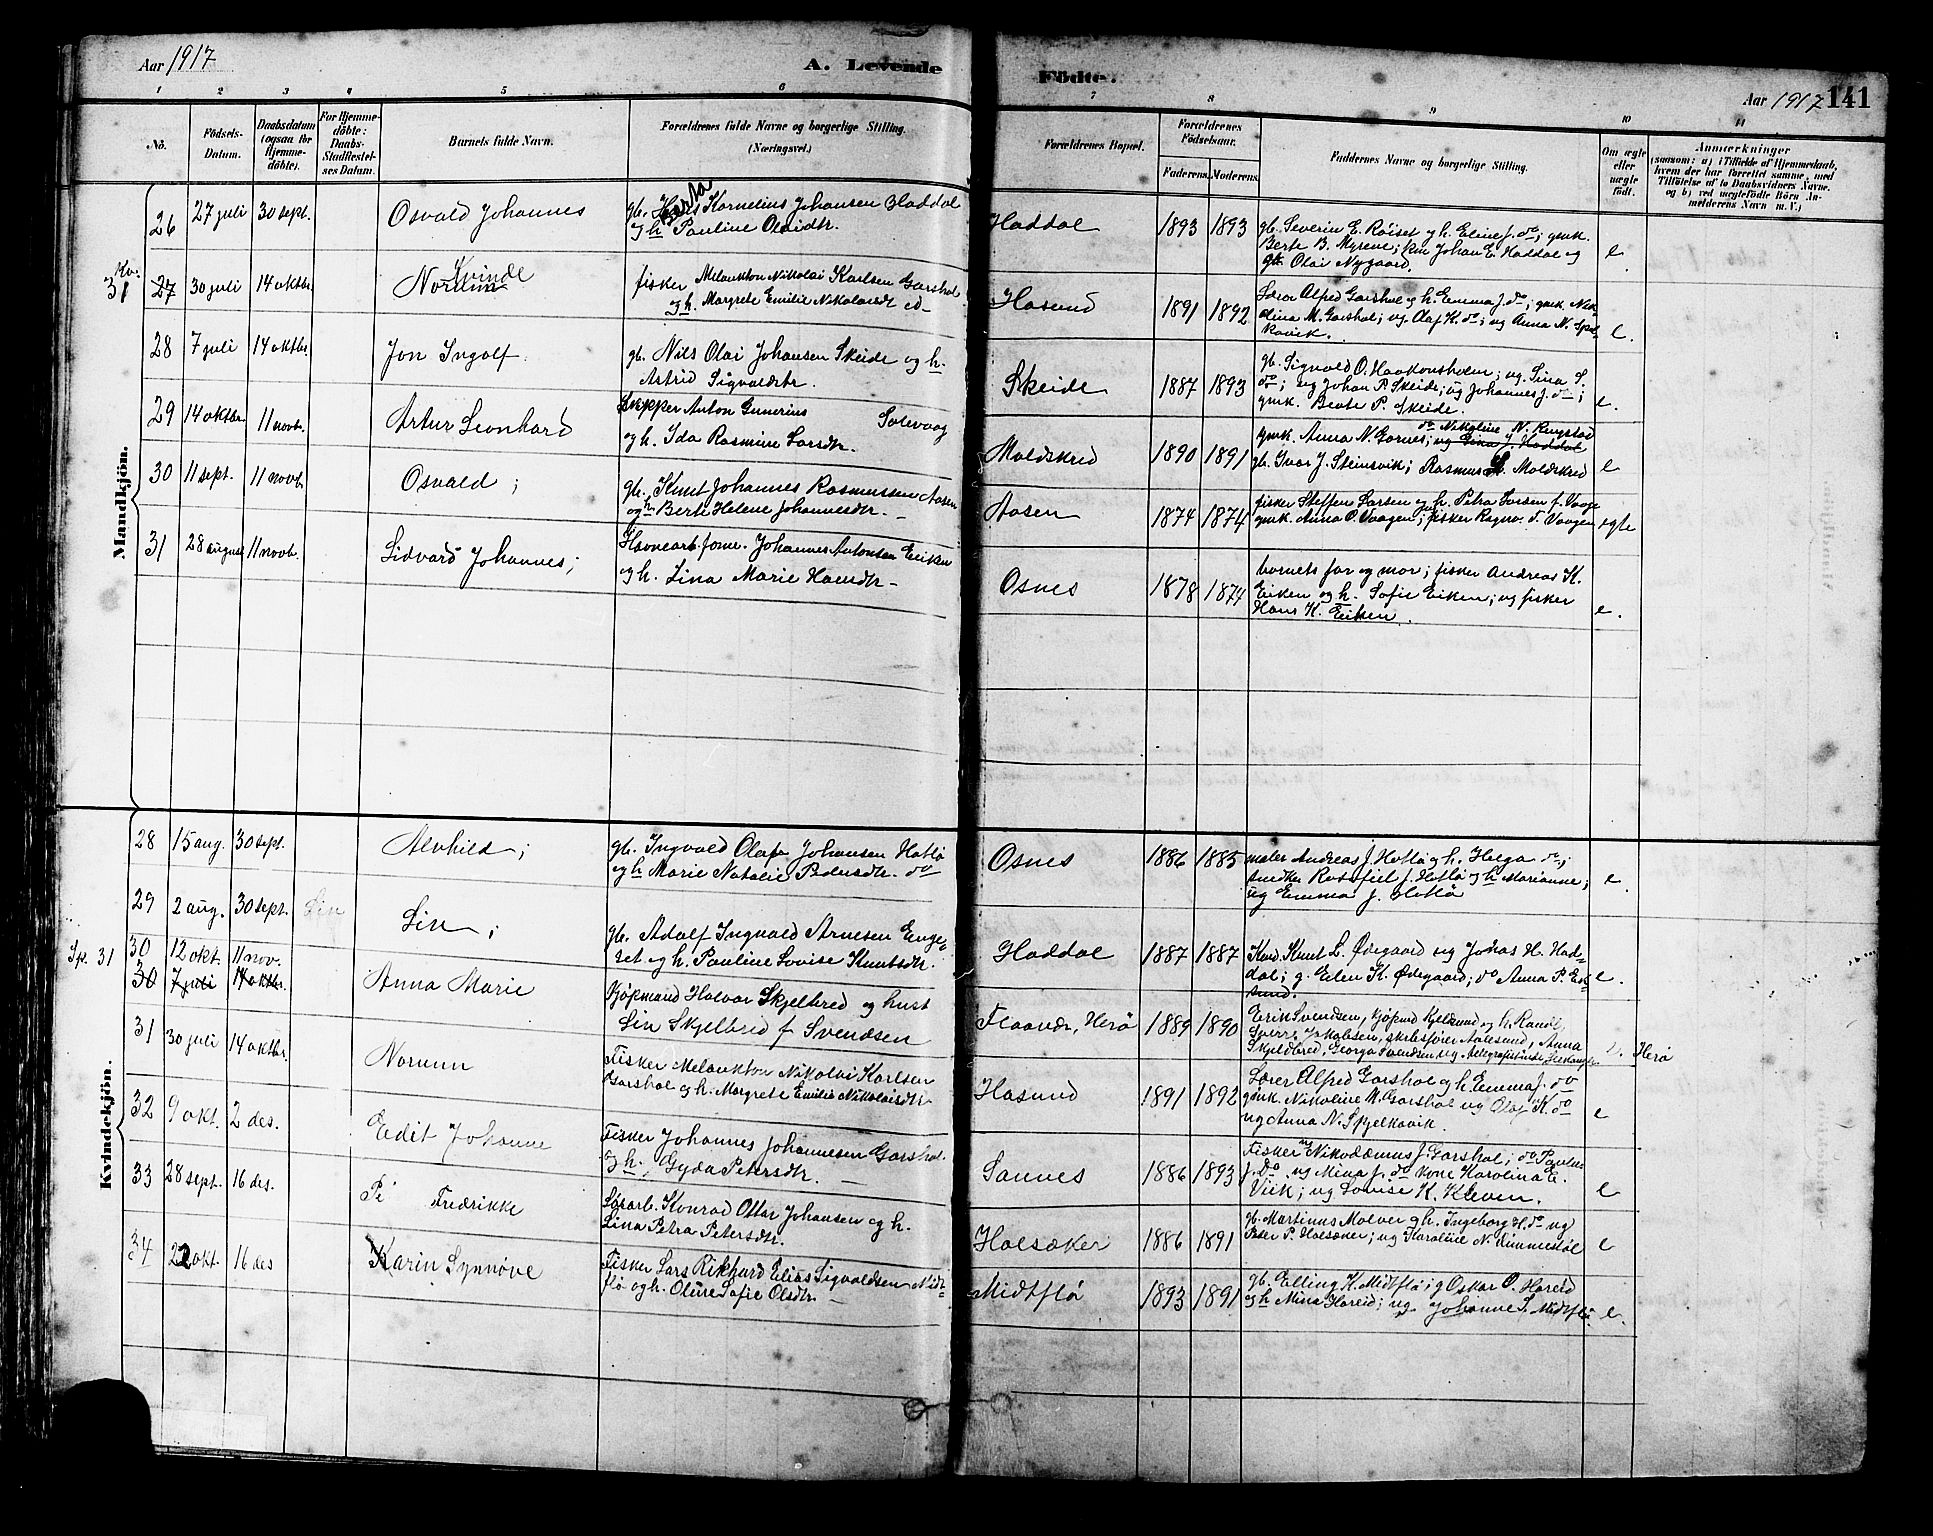 Aar 1917
A. Levende
Födte.
Aar 1917 141
1 2 3 4 5 6 7 8 9 10 11
No.
Födsels-
Datum.
Daabsdatum
(ogsaa for
Hjemme-
döbte).
For Hjemme-
döbte:
Daabs-
Stadfæstel-
ses Datum.
Barnets fulde Navn.
Forældrenes fulde Navne og borgerlige Stilling.
(Næringsvei.)
Forældrenes Bopæl.
Forældrenes
Födselsaar.
Faderens. Moderens.
Faddernes Navne og borgerlige Stilling.
Om ægte
eller
uægte
födt.
Anmærkninger
(saasom: a) i Tilfælde af Hjemmedaab,
hvem der har forrettet samme, med
Tilföielse af to Daabsvidners Navne.
og b) ved uægtefödte Börn An-
melderens Navn m. V.)
Mandkjön.
26 27 juli 30 sept. Osvald Johannes
gb. Kornelius Johansen Haddal
og h Pauline Olaidtr.
Haddal 1893 1893
gb. Severin E. Röiset og h. Eline J. do; gmk.
Berte B. Myrene; km Johan E. Haddal og
gk Olai Nygaard.
e.
Kv. 31
27 30 juli 14 oktbr. Norunn Kvinde
fisker Melankton Nikolai Karlsen Garshol
og h. Margrete Emilie Nikolaisdt
Hasund 1891 1892
Lærer Alfred Garshol og h. Emma J. do; gmk. Nik
oline M. Garshol; ug. Olaf K. do; ug Anna N. Spjel
kavik.
e.
28 7 juli 14 oktbr. Jon Ingolf
gb. Nils Olai Johansen Skeide og h.
Astrid Sigvaldsdtr.
Skeide 1887 1893
gb. Sigvald O. Haakonsholm; ug. Sina S.
do; ug Johan P. Skeide; ug Johannes J. do;
gmk. Berte P. Skeide.
e.
29 14 oktbr. 11 novb. Artur Leonhard
Skipper Anton Gunerius Solevaag
og h. Ida Rasmine Larsdtr.
Moldskred 1890 1891
do Nikoline N. Ringstad
gmk. Anna N. Garnes; ug Gina J. Haddal
gb. Ivar J. Steinsvik; Rasmus Moldskred
e
30 11 sept. 11 novb. Osvald;
gb. Knut Johannes Rasmussen Aasen
og h Berte Helene Johannesdtr. –
Aasen 1874 1874
fisker Steffen Larsen og h. Petra Larsen f. Vaage
gmk. Anna O. Vaagen; fisker Ragnv. T. Vaagen
egte
31 28 august 11 novb. Sidvard Johannes;
Havnearb. form. Johannes Antonsen Eiken
og h. Lina Marie Hansdtr –
Osnes 1878 1874
barnets far og mor; fisker Andreas K.
Eiken og h. Sofie Eiken; ug fisker
Hans K. Eiken.
e.
Kvindekjön.
28 15 aug. 30 sept. Alvhild;
gb. Ingvald Olaf Johansen Hotlö
og h Marie Natalie Pedersdtr. do
Osnes 1886 1885
maler Andreas J. Hotlö og h. Helga do;
snedker J. Hotlö og h Marianne;
ug Emma J. Hotlö
e.
29 2 aug. 30 sept. Siv Siv;
gb. Adolf Ingvald Arnesen Enge-
set og h. Pauline Lovise Knutsdtr.
Haddal 1887 1887
Knut L. Ödegaard ug Johas H. Had-
dal; g. Elen K. Ödegaard; do Anna P. Ek
sund.
e.
Sp. 31
30 12 okt. 11 nov.
30 7 juli 14 oktbr. Anna Marie
Kjöpmand Halvar Skjelbred og hust
Siv Skjelbred f Svendsen
Flaavær, Herö 1889 1890
Erik Svendsen, kjöpmd Kjeldsund og h. Randi,
Sverre Jakobsen, skibsförer Aalesund, Anna
Skjeldbred, Georga Svendsen ug
Herö
31 30 juli 14 oktbr. Norunn
Fisker Melankton Nikolai Karlsen
Garshol og h. Margrete Emilie Nikolaisdtr
Hasund 1891 1892
Lærer Alfred Garshol og h. Emma J. do
gmk. Nikoline M. Garshol ug Olaf K. do
ug Anna N. Spjelkavik.
e
32 9 okt. 2 des. Edit Johanne
Fisker Johannes Johannesen Garshol
og h. Gyda Petersdtr. –
Sannes 1886 1893
Fisker Nikodæmus J. Garshol; do Paulus
J. do ug Mina J. do kone Karolina E.
Viik; ug Lovise K. Kleven.
e
33 28 sept. 16 des. Pi Fredrikke
Konrad Ottar Johansen og h.
Lina Petra Petersdtr.
Holsæker 1886 1891
gb. Martinus Molver og h. Ingeborg H. do ug
Peter P. Holsæker; ug Karoline N. Dimmestöl
e
34 22 okt. 16 des Karin Synnöve
Fisker Lars Rikhard Elias Sigvaldsen Midt-
flö og h. Oline Sofie Olsdtr.
Midtflö 1893 1891
gb. Elling K. Midtflö; g Oskar O. Hareid
og h Mina Hareid; ug Johanne S. Midtflö
e.